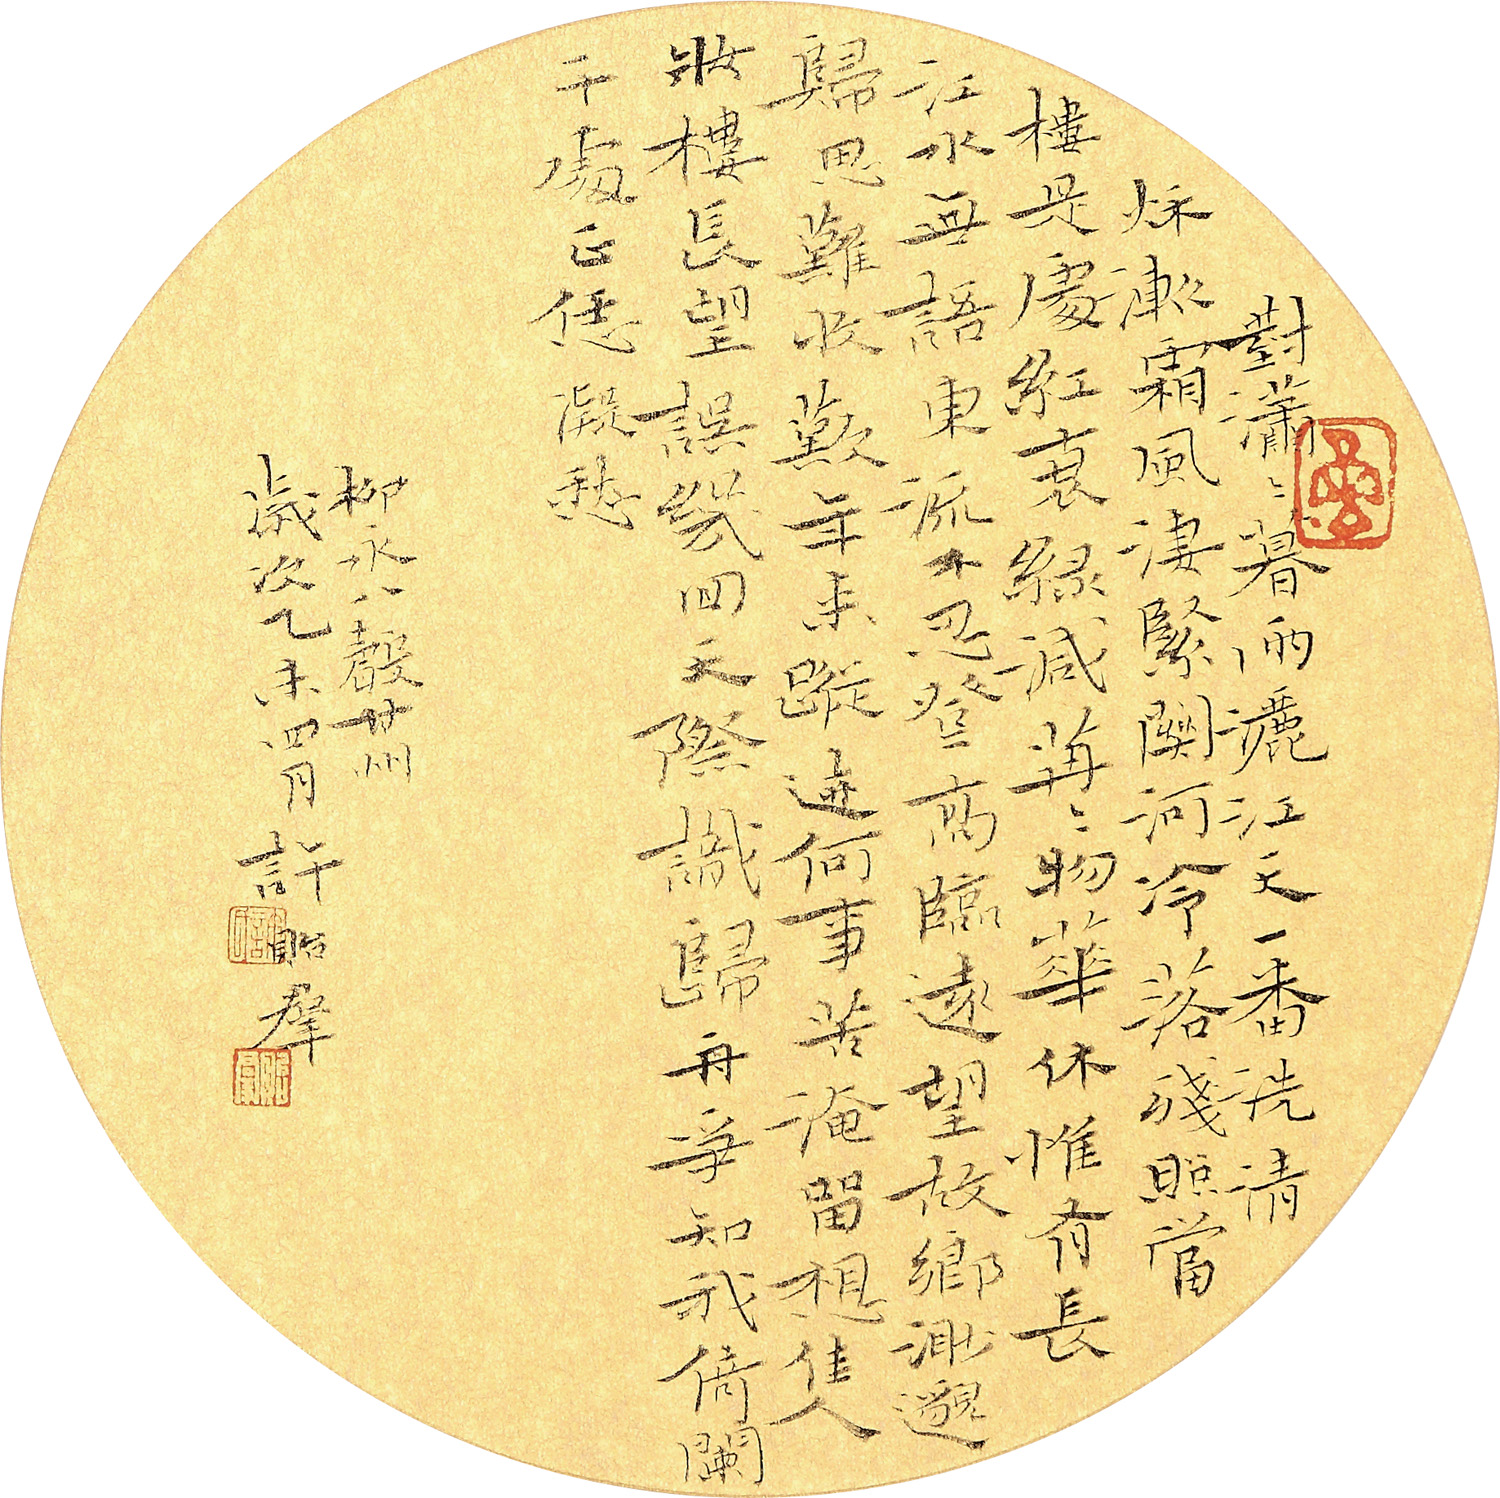 對瀟〻暮雨灑江天一番洗清
秌漸霜風淒緊關河冷落殘照當
樓是處紅衰綠減苒〻物華休惟有長
江水無語東流不忍登高臨遠望故鄉渺邈
歸思難收歎年來蹤迹何事苦淹留想佳人
妝樓長望誤幾回天際識歸舟爭知我倚闌
干處正恁凝愁
柳永八聲甘州
歲次乙未四月許貽羣